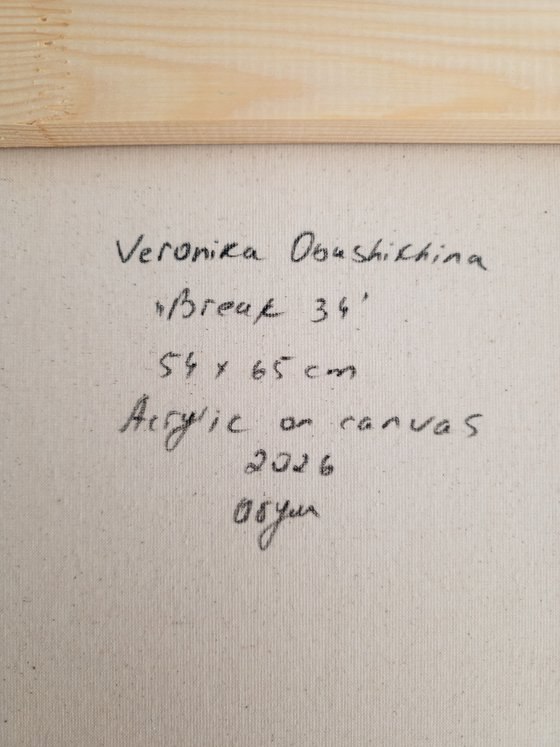 Veronika Obushikhina
"Break 34"
54 x 65 cm
Acrylic on canvas
2026
Обуш